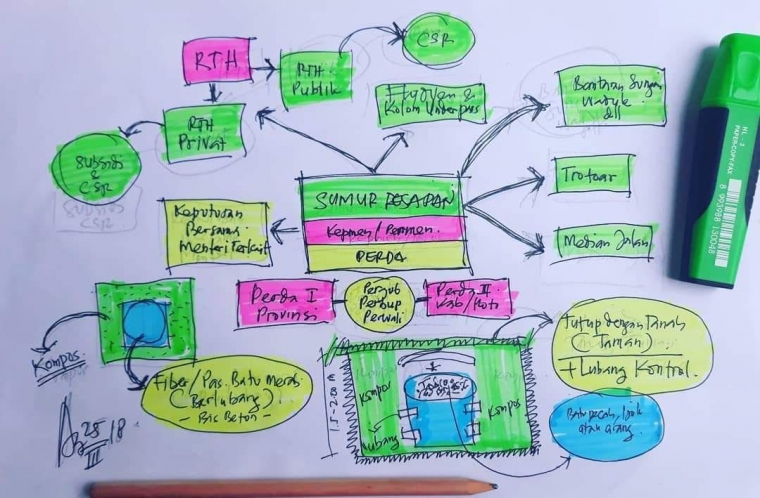 RTH
RTH
Publik
CSR
RTH
Privat
Subsidi
&
CSR
Kolom Underpass
Bantaran Sungai
dll
Trotoar
Median Jalan
SUMUR RESAPAN
Kepmen / Permen.
PERDA
Keputusan
Bersama
Menteri Terkait
Perda I
Provinsi
Pergub
Perbup
Perwali
Perda II
Kab/Kota
Kompos
Fiber / Pas. Batu Merah
(Berlubang)
- Bis Beton -
Kompos
Kompos
Lubang
Tutup dengan Tanah
(Taman)
+ Lubang Kontrol.
Batu pecah, Ijuk
atau arang.
28/18
III
HL-3
PAPER-COPY-FAX